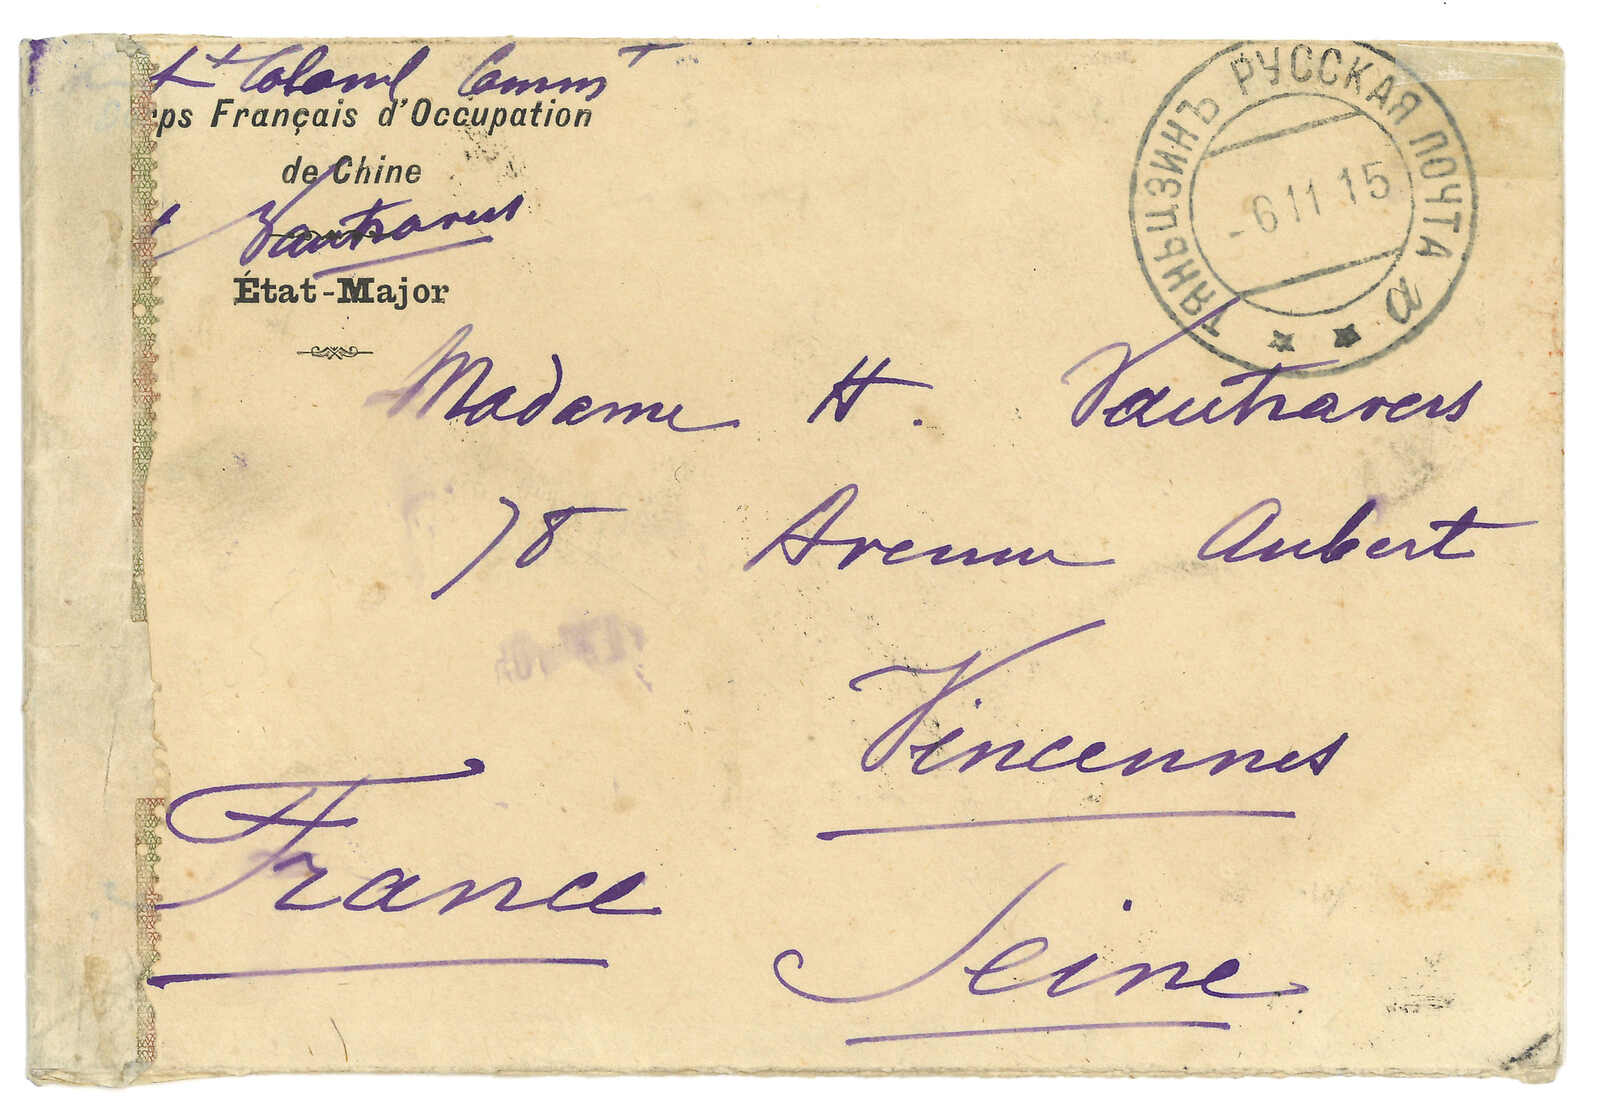 Lt Colonel Commt
rps Français d'Occupation
de Chine
Vautravers
État-Major
ТЯНЬЦЗИНЪ РУССКАЯ ПОЧТА а
-6 11 15
Madame H. Vautravers
78 Avenue Aubert
Vincennes
France
Seine